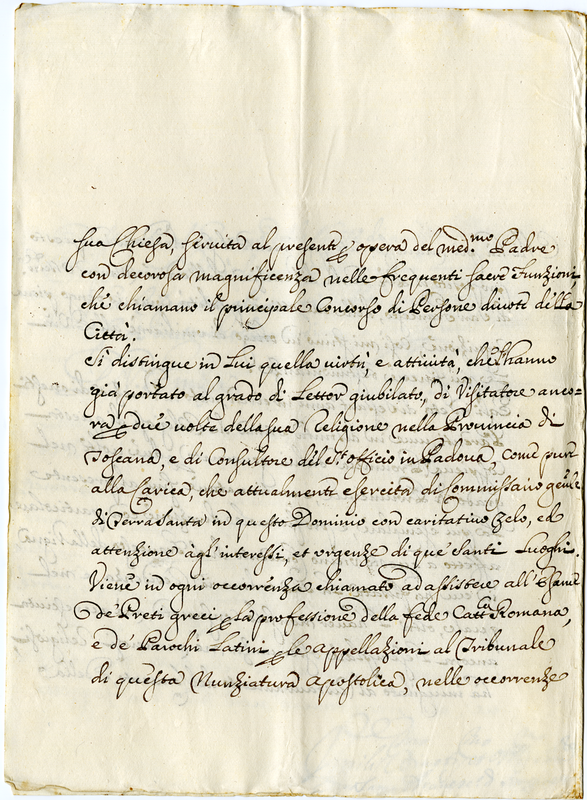 sua Chiesa, servita al presente p opera del med.mo Padre
con decorosa magnificenza nelle frequenti sacre Funzioni
che chiamano il principale Concorso di Persone divote della
Città.
Si distingue in Lui quella virtù, e attività, che l'hanno
già portato al grado di Lettor giubilato, di Visitatore anco-
ra p due volte della sua Religione nella Provincia di
Toscana, e di Consultore del S.t officio in Padova, come pure
alla Carica, che attualmente esercita di Commissario gen.le
di Terra Santa in questo Dominio con caritativo Zelo, ed
attenzione agl'interessi, et urgenze di que' Santi Luoghi.
Viene in ogni occorrenza chiamato ad assistere all'Esame
de' Preti greci p la professione della fede Catt.ca Romana,
e de' Parochi Latini p le appellazioni al Tribunale
di questa Nunziatura Apostolica, nelle occorrenze